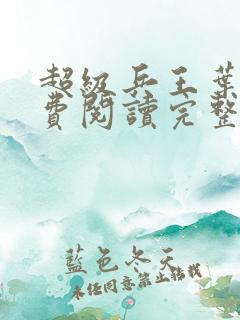 超級兵王葉
費閱讀完整
藍色冬天
未經同意禁止轉載